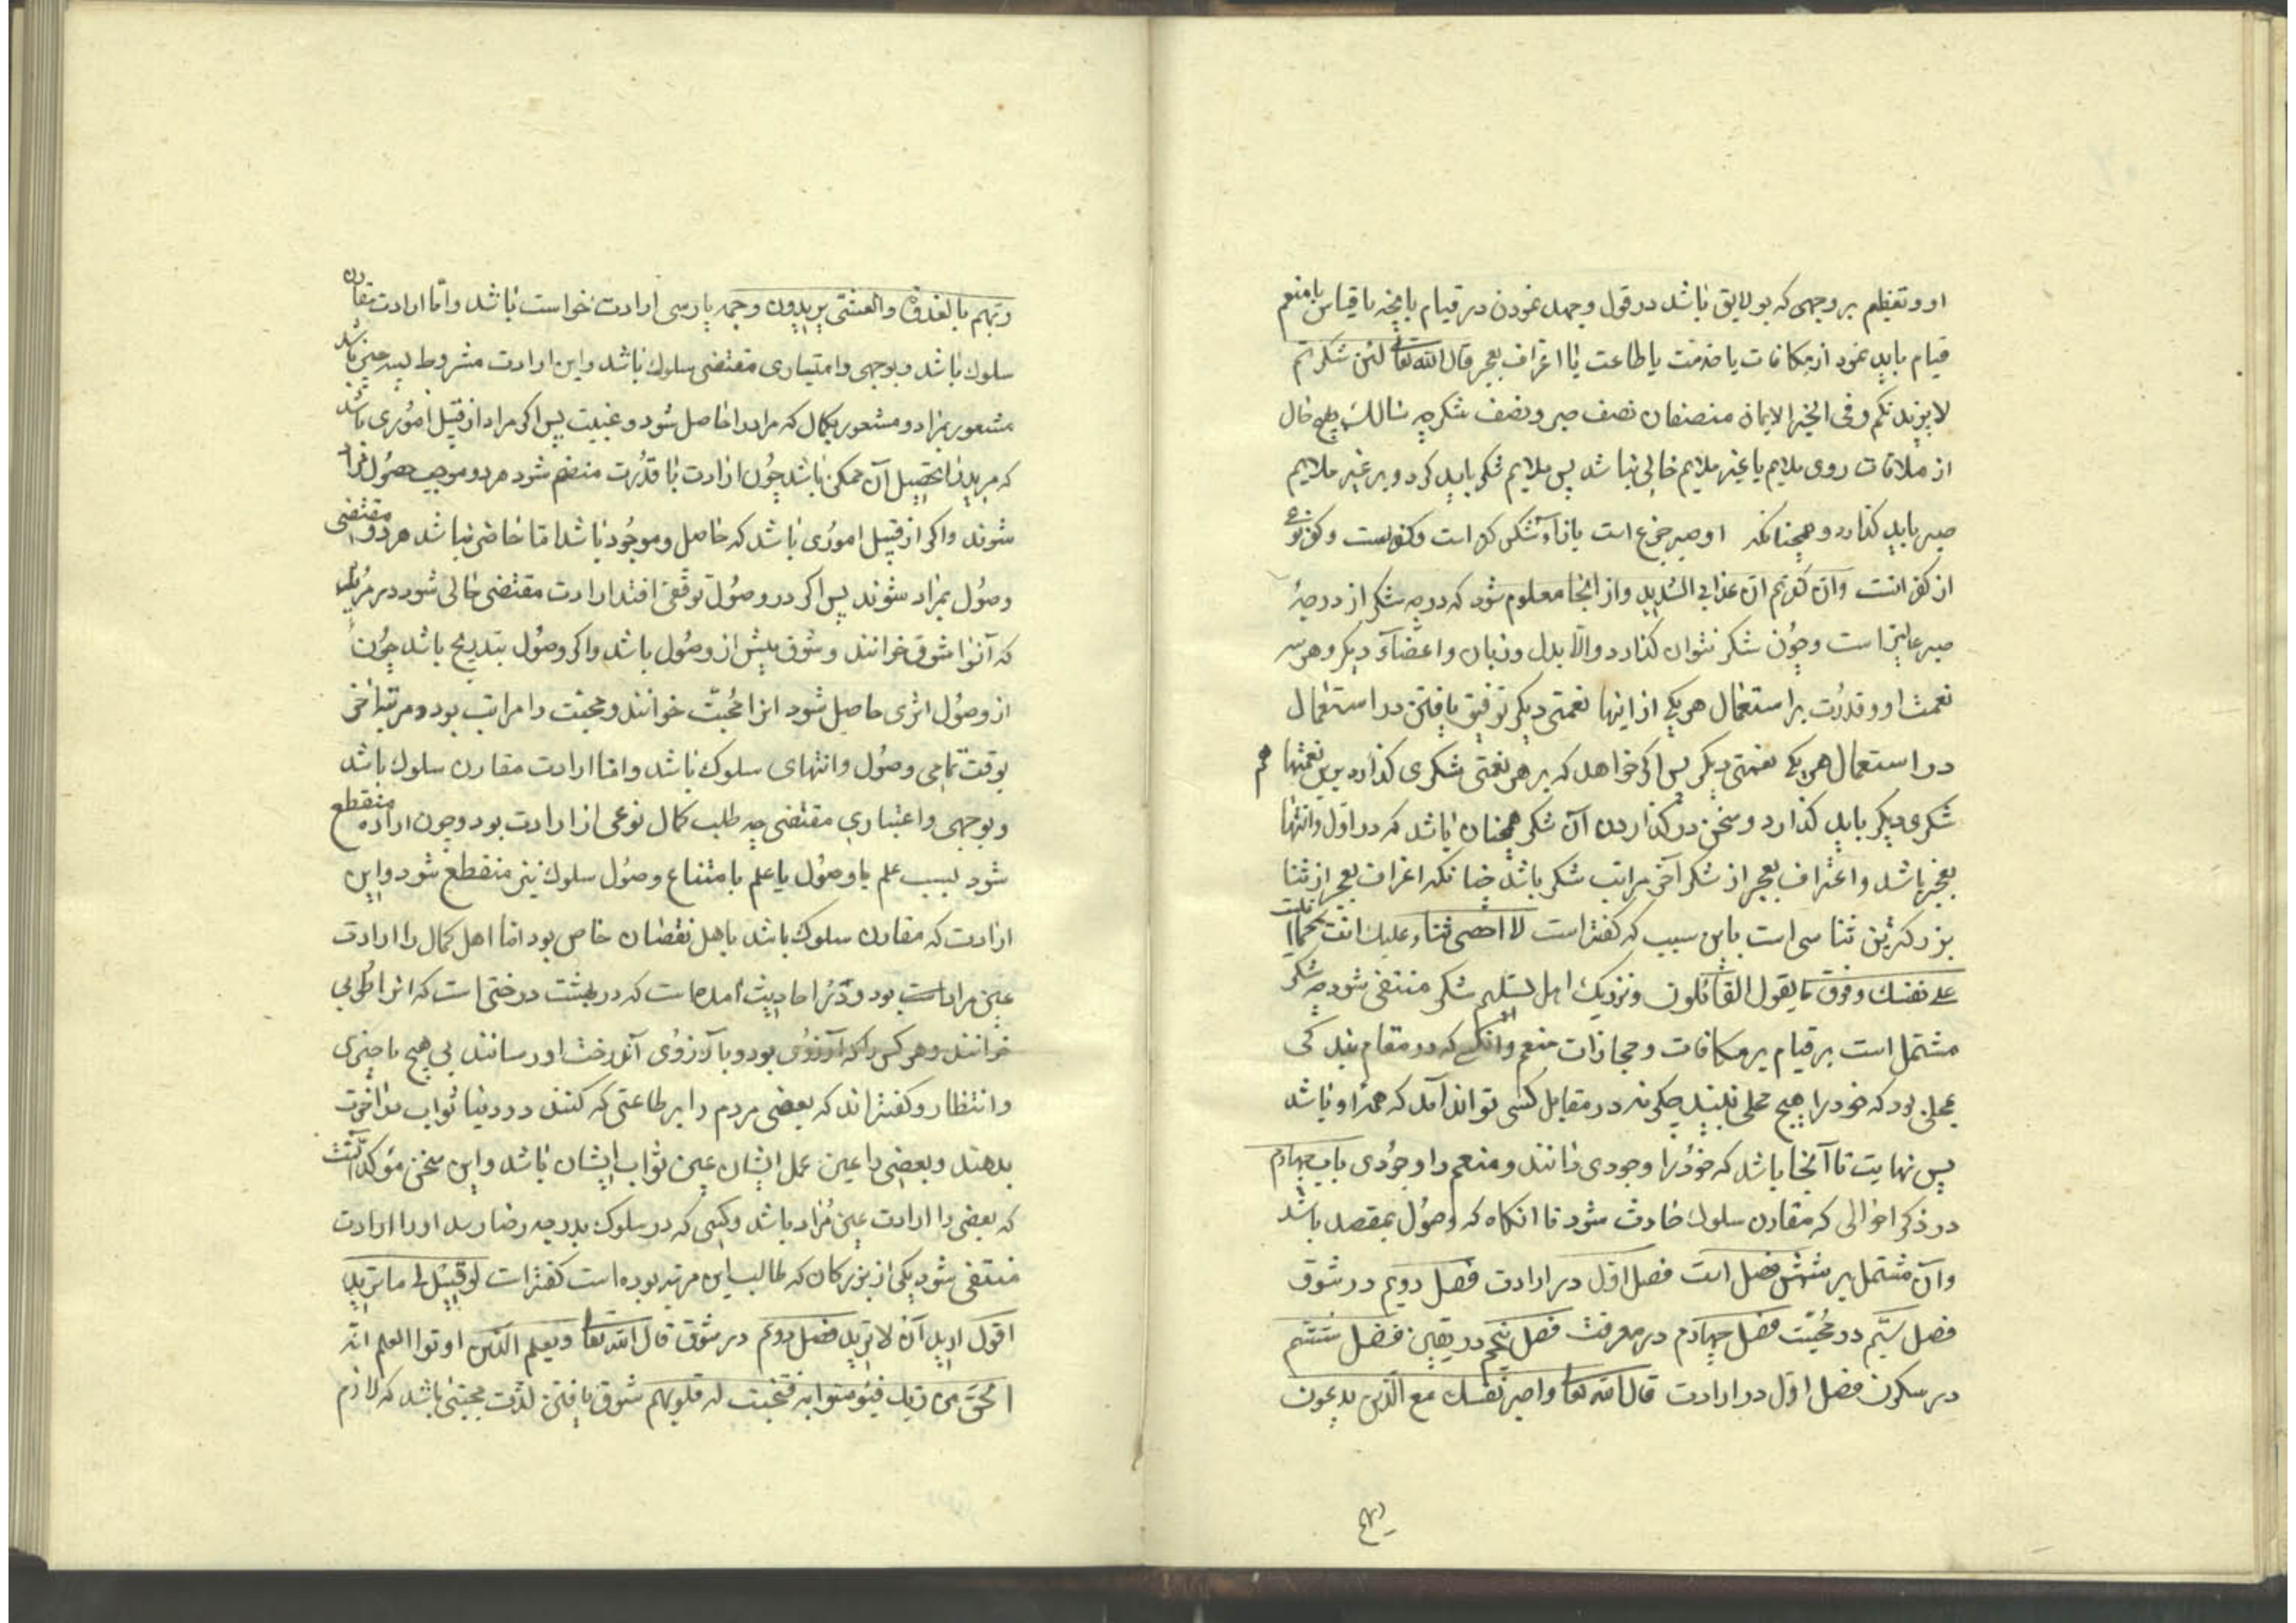 او و تعظیم بر وجهی که بدو لایق باشد در قول و جهد نمودن در قیام بآنچه با قیاس با منعم
قیام باید نمود از مکافات یا خدمت یا طاعت یا اعتراف بعجز قال الله تعالی لئن شکرتم
لازیدنکم و فی الخبر الایمان نصفان نصف صبر و نصف شکر چه سالک بهیچ حال
از ملاقات روی ملایم یا غیر ملایم خالی نباشد پس ملایم شکر باید کرد و بر غیر ملایم
صبر باید کذارد و همچنانکه او صبر جزع است بازاء شکر کفر است و کفر نوعی
از کفرانست و ان کفرتم ان عذابی لشدید و از اینجا معلوم شود که درجه شکر از درجهٔ
صبر عالیتر است و چون شکر نتوان کذارد والّا بدل و زبان و اعضآء دیکر و هر سه
نعمت او و قدرت بر استعمال هر یکی از اینها نعمتی دیکر توفیق یافتن در استعمال
در استعمال هر یکی نعمتی دیکر پس اکر خواهد که بر هر نعمتی شکری کذارد برین نعمتها هم
شکری دیکر باید کذارد و سخن در کذاردن آن شکر همچنان باشد که در اوّل و انتها
بعجز باشد و اعتراف بعجز از شکر آخر مراتب شکر باشد چنانکه اعتراف بعجز از ثنا
بزرکترین ثناسی است باین سبب که کفته است لا احصی ثناء علیک انت کما اثنیت
علی نفسک و فوق ما یقول القائلون و نزدیک اهل تسلیم شکر منتفی شود چه شکر
مشتمل است بر قیام بر مکافات و مجازات منعم و انکس که در مقام بندکی
بمحلی بود که خود را هیچ محلی نبیند چکونه در مقابل کسی تواند آمد که همه او باشد
پس نهایت تا آنجا باشد که خود را وجودی دانند و منعم را وجودی باب چهارم
در ذکر احوالی که مقارن سلوک حادث شود تا انکاه که وصول بمقصد باشد
و آن مشتمل بر شش فصل است فصل اوّل در ارادت فصل دویم در شوق
فصل سیّم در محبّت فصل چهارم در معرفت فصل پنجم در یقین فصل ششم
در سکون فصل اوّل در ارادت قال الله تعالی واصبر نفسک مع الّذین یدعون
ربهم
ربّهم بالغدوة والعشی یریدون وجهه پارسی ارادت خواست باشد و امّا ارادت مقارن
سلوک باشد و بوجهی و امتیاری مقتضی سلوک باشد و این ارادت مشروط بسه چیز باشد
مشعور بمراد و مشعور بکمال که مراد را حاصل شود و غیبت پس اکر مراد از قبیل اموری باشد
که مرید را تحصیل آن ممکن باشد چون ارادت با قدرت منضم شود هر دو موجب حصول مراد
شوند و اکر از قبیل اموری باشد که حاصل و موجود باشد امّا حاضر نباشد هر دو مقتضی
وصول بمراد شوند پس اکر در وصول توقّفی افتد ارادت مقتضی حالی شود در مرید
که آنرا شوق خوانند و شوق پیش از وصول باشد و اکر وصول بتدریج باشد چون
از وصول اثری حاصل شود انرا محبّت خوانند و محبّت را مراتب بود و مرتبه اخر
بوقت تمامی وصول و انتهای سلوک باشد و امّا ارادت مقارن سلوک باشد
و بوجهی و اعتباری مقتضی چه طلب کمال نوعی از ارادت بود و چون اراده منقطع
شود بسبب علم با وصول یا علم بامتناع وصول سلوک نیز منقطع شود و این
ارادت که مقارن سلوک باشد باهل نقصان خاص بود امّا اهل کمال را ارادت
عین مراد است بود و در احادیث آمده است که در بهشت درختی است که انرا طوبی
خوانند و هر کس را که آرزوی بود و با آرزوی آن درخت اورسانند بی هیچ تاخیری
و انتظار و کفته‌اند که بعضی مردم را بر طاعتی که کنند در دنیا ثواب در آخرت
بدهند و بعضی را عین عمل ایشان عین ثواب ایشان باشد و این سخن مؤکّد آنست
که بعضی را ارادت عین مراد باشد و کسی که در سلوک بدرجه رضا رسد او را ارادت
منتفی شود یکی از بزرکان که طالب این مرتبه بوده است کفته است لو قیل لی ما ترید
اقول ارید ان لا ارید فصل دویم در شوق قال الله تعالی ویعلم الّذین اوتوا العلم انّه
الحقّ من ربّک فیؤمنوا به فتخبت له قلوبهم شوق یافتن لذّت محبّتی باشد که لازم